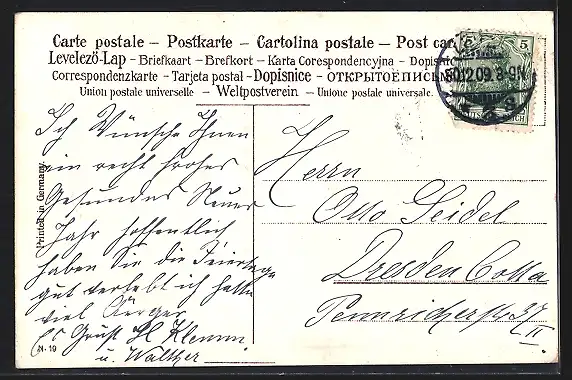 Carte postale – Postkarte – Cartolina postale – Post car
Levelező-Lap – Briefkaart – Brefkort – Karta Corespondencyjna – Dopisnic
Correspondenzkarte – Tarjeta postal – Dopisnice – ОТКРЫТОЕ ПИСЬМО
Union postale universelle – Weltpostverein. – Unione postale universale.
5 5
30.12.09. 8-9N.
Ich Wünsche Ihnen
ein recht frohes
Gesundes Neues
Jahr hoffentlich
haben Sie die Feiertage
gut verlebt ich hatte
viel Ärger
Gruß Kl Klemm
u. Walther
Printed in Germany.
N. 19
Herrn
Otto Seidel
Dresden Cotta
Pennricherstr. 37
II.